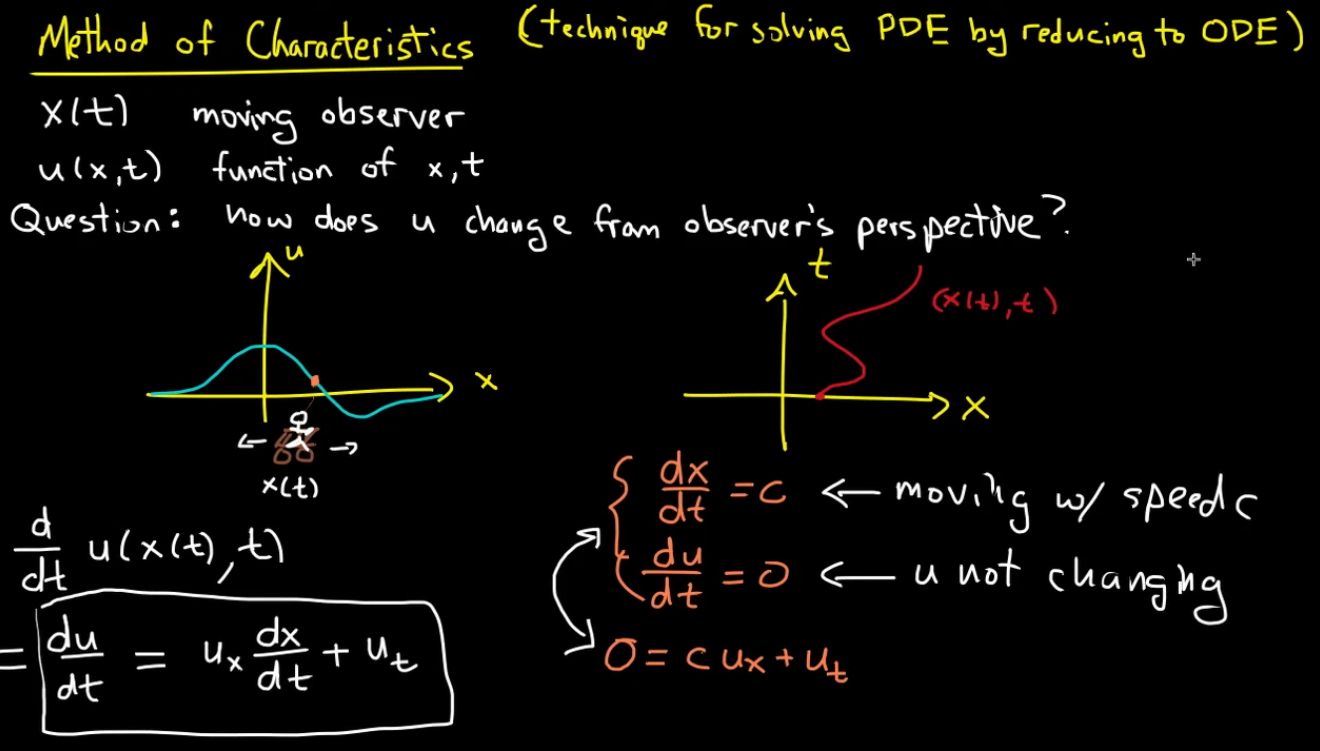 Method of Characteristics (technique for solving PDE by reducing to ODE)
x(t) moving observer
u(x,t) function of x,t
Question: how does u change from observer's perspective?
u
x
x(t)
t
(x(t),t)
x
d/dt u(x(t),t)
= du/dt = u_x dx/dt + u_t
dx/dt = c ← moving w/ speed c
du/dt = 0 ← u not changing
0 = c u_x + u_t